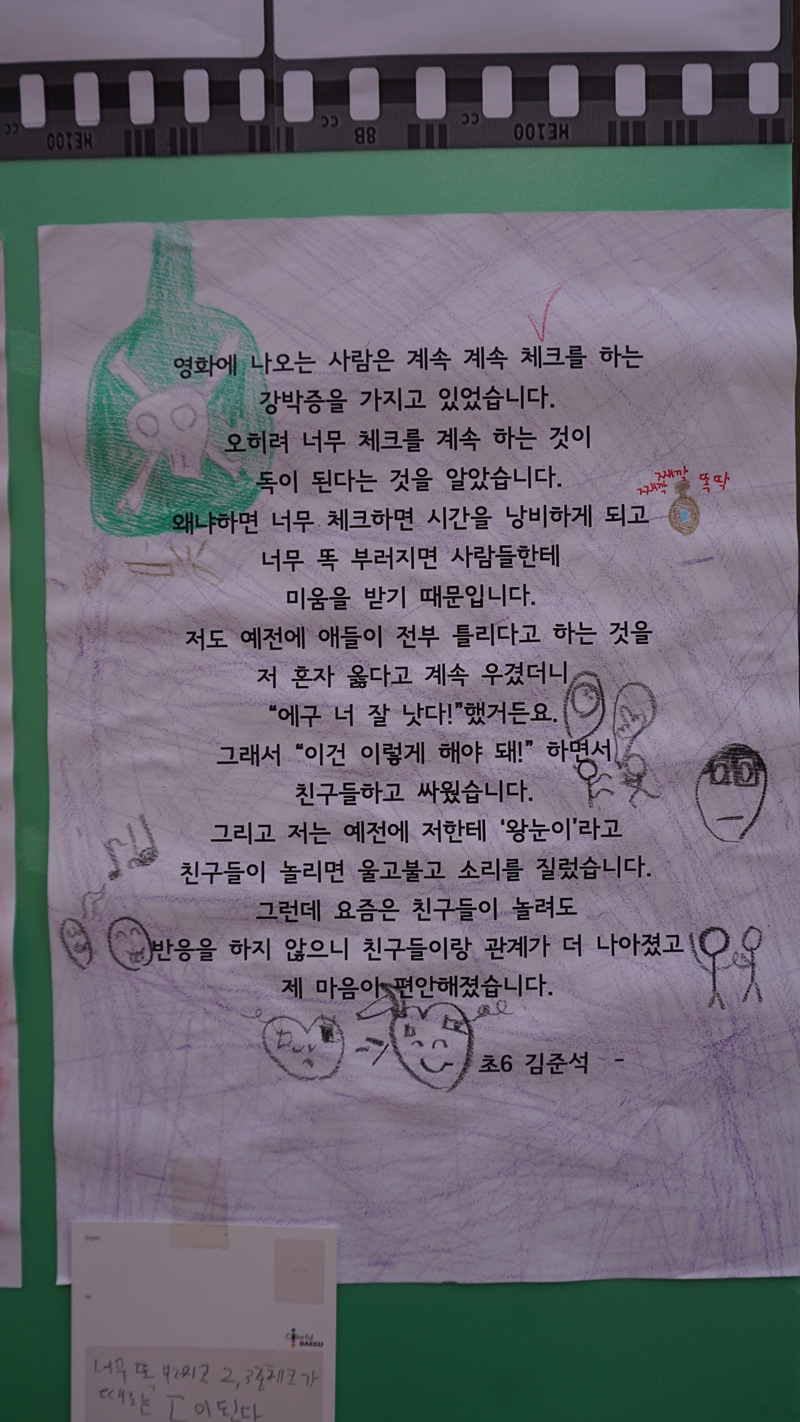 HE100
8B
HE100
영화에 나오는 사람은 계속 계속 체크를 하는
강박증을 가지고 있었습니다.
오히려 너무 체크를 계속 하는 것이
독이 된다는 것을 알았습니다.
째깍 째깍 똑딱
왜냐하면 너무 체크하면 시간을 낭비하게 되고
너무 똑 부러지면 사람들한테
미움을 받기 때문입니다.
저도 예전에 애들이 전부 틀리다고 하는 것을
저 혼자 옳다고 계속 우겼더니
“에구 너 잘 낫다!”했거든요.
그래서 “이건 이렇게 해야 돼!” 하면서
친구들하고 싸웠습니다.
그리고 저는 예전에 저한테 ‘왕눈이’라고
친구들이 놀리면 울고불고 소리를 질렀습니다.
그런데 요즘은 친구들이 놀려도
반응을 하지 않으니 친구들이랑 관계가 더 나아졌고
제 마음이 편안해졌습니다.
초6 김준석
from
to
Colorful DAEGU
너무 또 2,3중체크가
때로는 이 된다